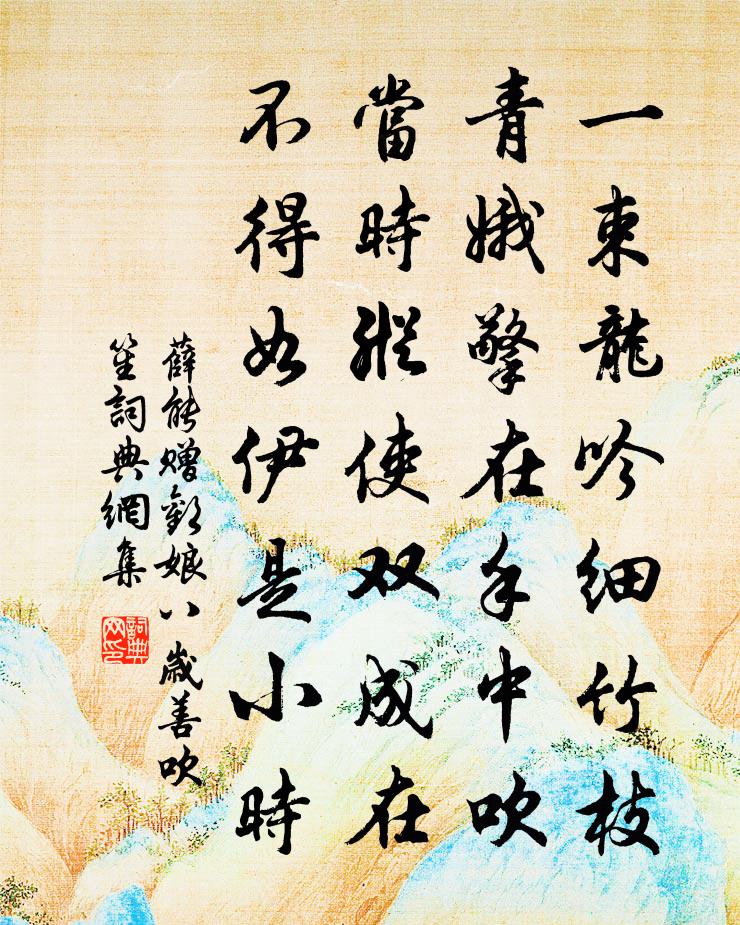 一束龍吟細竹枝
青娥擎在手中吹
當時縱使双成在
不得如伊是小時
薛能贈歡娘八歲善吹
笙詞典網集
詞典網印